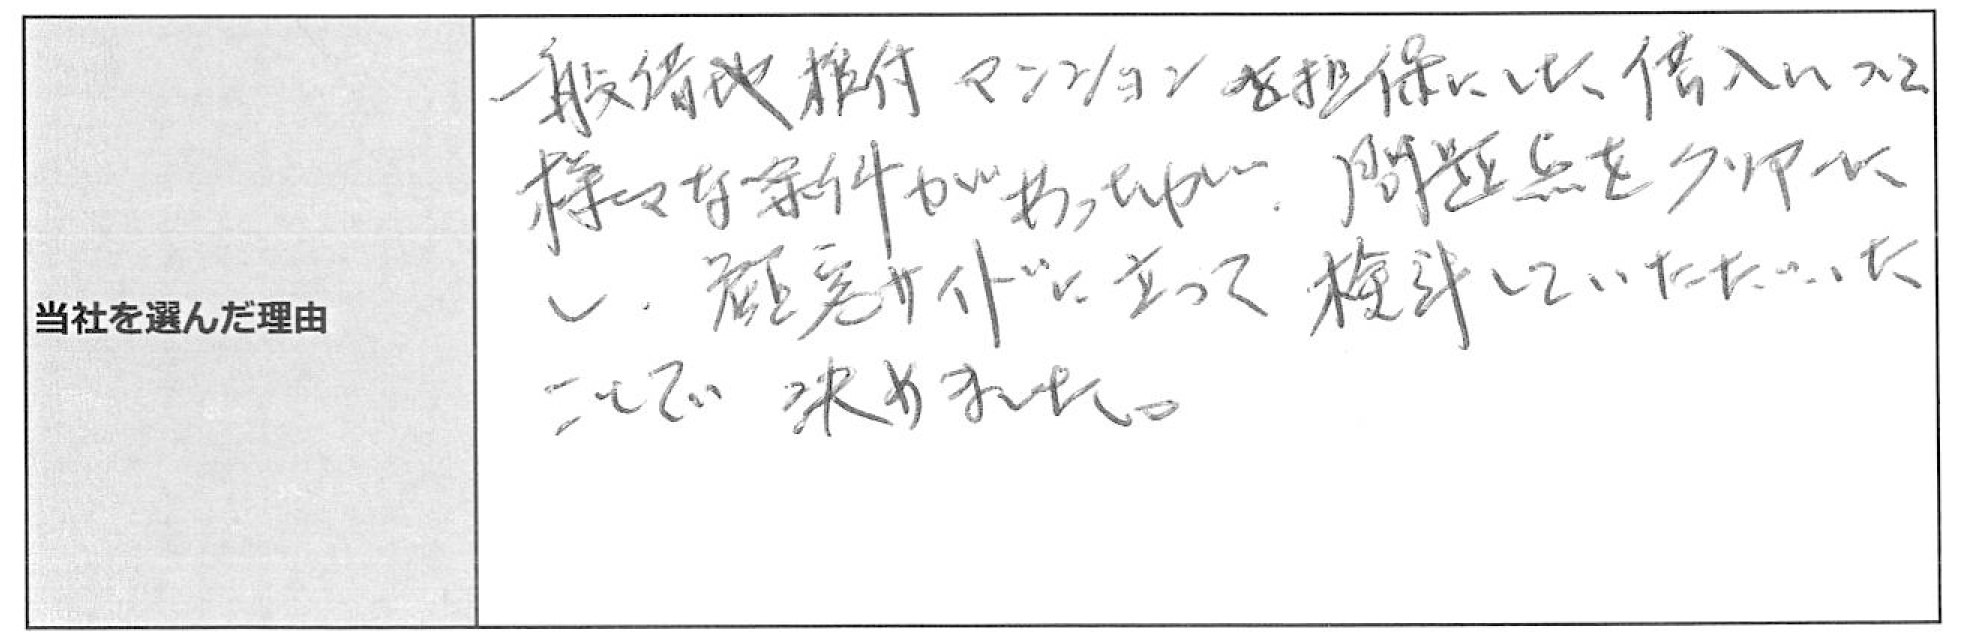 当社を選んだ理由
一般借地権付マンションを担保にした、借入について
様々な条件があったが、問題点をクリアーに
し、顧客サイドに立って検討していただいた
ことで決めました。